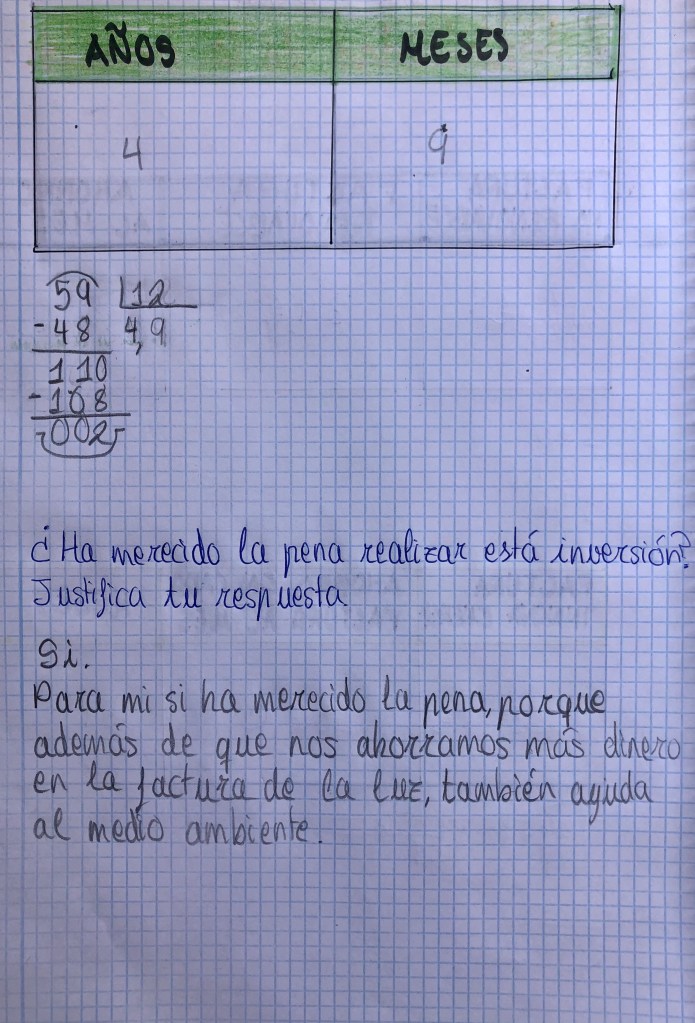 AÑOS MESES
4 9
59 12
-48 4,9
110
-108
002
¿Ha merecido la pena realizar está inversión?
Justifica tu respuesta.
Si.
Para mi si ha merecido la pena, porque
además de que nos ahorramos más dinero
en la factura de la luz, también ayuda
al medio ambiente.